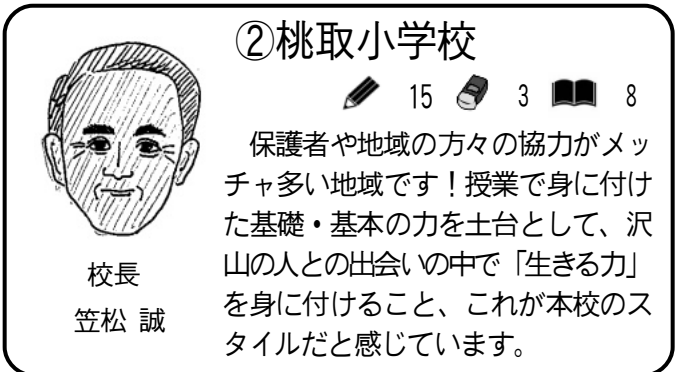 ②桃取小学校
15 3 8
保護者や地域の方々の協力がメッ
チャ多い地域です！授業で身に付け
た基礎・基本の力を土台として、沢
山の人との出会いの中で「生きる力」
を身に付けること、これが本校のス
タイルだと感じています。
校長
笠松 誠